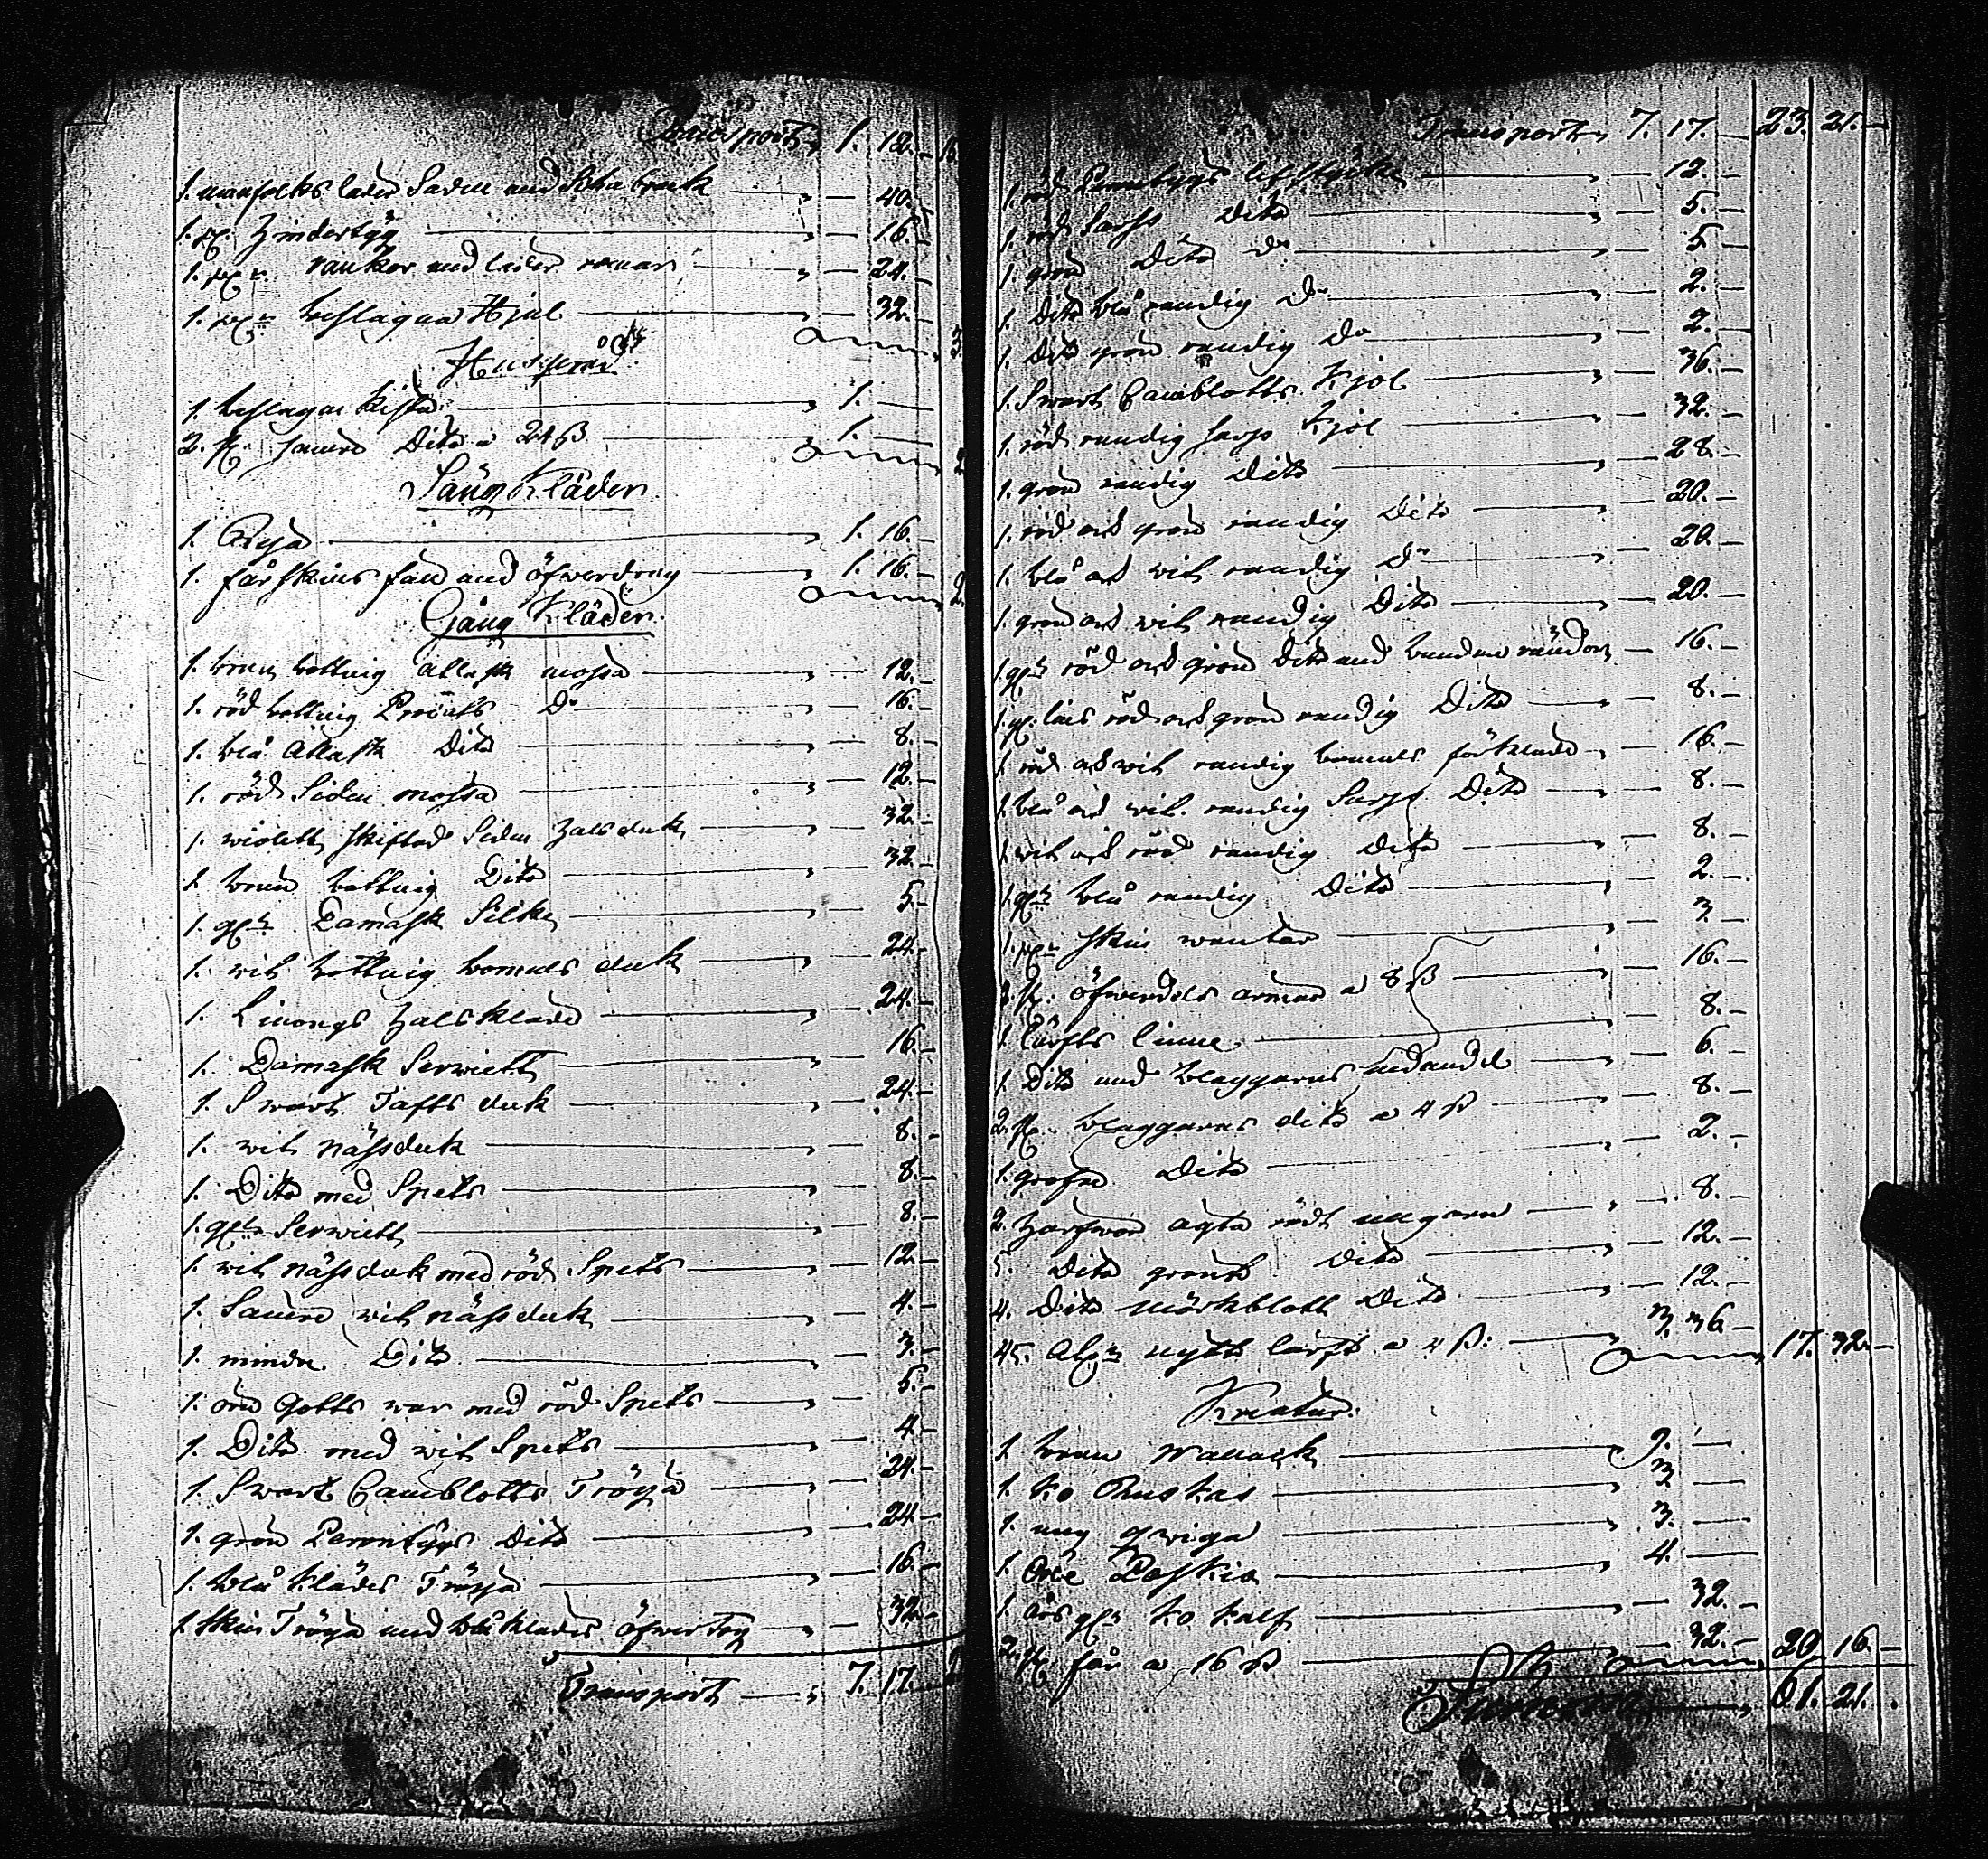 Transport 1. 12.
1. manfolks läder Sadel med Schabrack 40.
1. pr Hindertyg 16.
1. pr rankor med läder remar 24.
1. pr beslagna Hjul 32.
Husgeråd
1. beslagen Kista 1.
2. st. sämre Dito a 24 ß 1.
Säng Kläder
1. Rya 1. 16.
1. fårskins fäll med öfwerdrag 1. 16.
Gång Kläder.
1. brun bottnig Atlask mössa 12.
1. röd bottnig D° 16.
1. blå Atlask Dito 8.
1. röd Siden mössa 12.
1. violett skiftad Siden halsduk 32.
1. brun bottnig Dito 32.
1. gl. Damask Silke 5.
1. wit bottnig bomuls duk 24.
1. Linongs halskläde 24.
1. Damask Serviett 16.
1. Swart Tafts duk 24.
1. wit näsduk 8.
1. Dito med Spets 8.
1. gl. Serviett 8.
1. wit näsduk med röd Spets 12
1. Sämre wit näsduk 4.
1. mindre Dito 3.
1. örne Gotts war med röd Spets 5.
1. Dito med wit Spets 4
1. Swart Camblotts Tröya 24.
1. grön Perontygs Dito 24.
1. blå Klädes Tröya 16.
1. skin Tröya med blå klädes öfwertyg 32.
Transport 7. 17.
Transport 7. 17. 23. 21.
1. röd Perontygs lifstycke 12.
1. röd Sarss Dito 5.
1. grön Dito D° 5
1. Dito blå randig D° 2.
1. Dito grön randig D° 2.
1. Swart Camblotts Kjol 36.
1. röd randig Sarss Kjol 32.
1. grön randig Dito 28.
1. röd och grön randig Dito 20.
1. blå och wit randig D° 20.
1. grön och wit randig Dito 20.
1. gl. röd och grön Dito med bundna ränder 16.
1. gl. röd och grön randig Dito 8.
1. röd och wit randig bomuls förkläde 16.
1. blå och wit randig Sarss Dito 8.
1. wit och röd randig Dito 8.
1. gl. blå randig Dito 2.
1. pr skin wantar 3
2. st. öfwerdels ärmar a 8 ß 16.
1. lärfts linne 8.
1. Dito med blaggarns nedandel 6.
2. st. blaggarns dito a 4 ß 8.
1. grofre Dito 2.
2. härfwor ägta rödt ullgarn 8.
5. Dito grönt Dito 12.
4. Dito mörkblått Dito 12.
45. Aln nytt lärft a 4 ß: 3. 36 17. 32.
Kreatur.
1. brun Wallack 9.
1. Ko Ruskas 3
1. ung qwiga 3.
1. Dæskia 4.
1. års gl. Ko Kalf 32.
2. st. får a 16 ß 32. 20. 16.
Summa 61. 21.